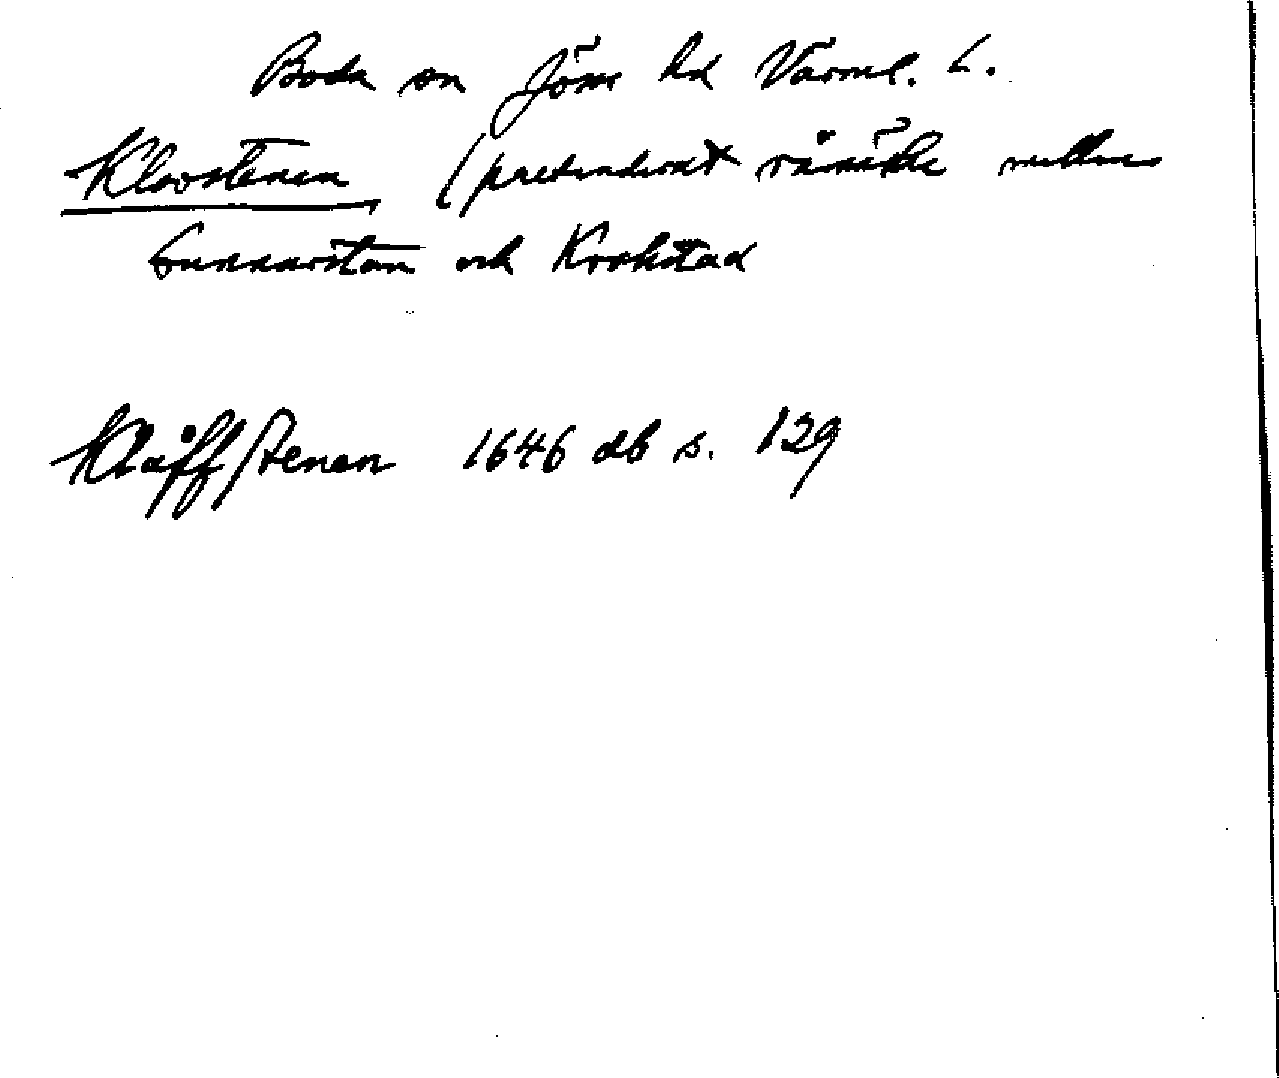 Boda sn Jöss hd Värml. L.
Klovstenen (pretenderat råmärke mellan
Gunnarstan och Krokstad
Klåffstenen 1646 db s. 129